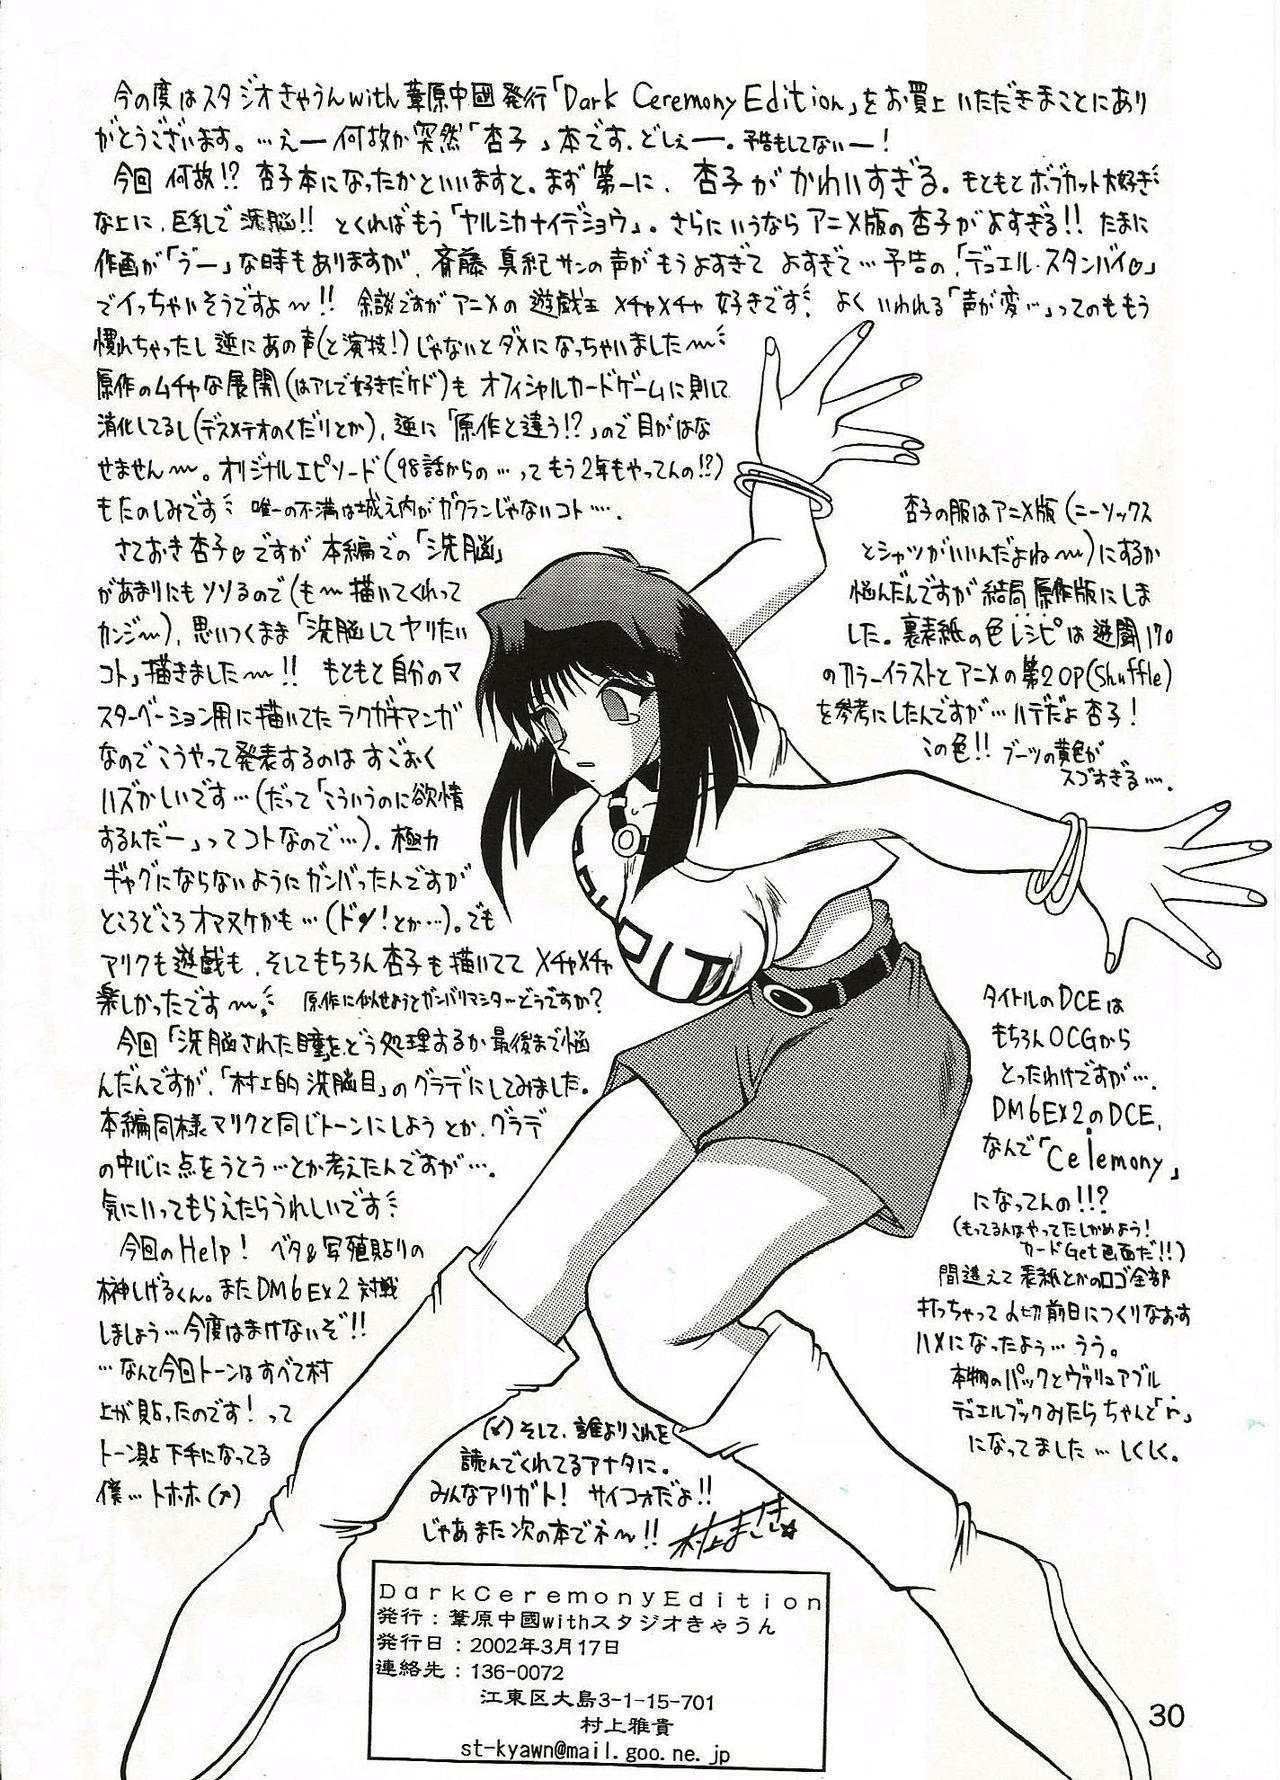 今の度はスタジオきゃうんwith葦原中國発行「Dark Ceremony Edition」をお買上いただきまことにあり
がとうございます。…えー何故か突然「杏子」本です。どしぇー。予告もしてないー!
今回何故!? 杏子本になったかといいますと。まず第一に、杏子がかわいすぎる。もともとボブカット大好き
な上に、巨乳で洗脳!! とくればもう「ヤルシカナイデショウ」。さらにいうならアニメ版の杏子がよすぎる!! たまに
作画が「うー」な時もありますが、斉藤真紀サンの声がもうよすぎてよすぎて…予告の、「デュエル・スタンバイ♡」
でイっちゃいそうですよ〜!! 余談ですがアニメの遊戯王メチャメチャ好きです。よくいわれる「声が変…」ってのももう
慣れちゃったし逆にあの声(と演技!)じゃないとダメになっちゃいました〜
原作のムチャな展開(はアレで好きだケド)もオフィシャルカードゲームに則して
消化してるし(デスメテオのくだりとか)、逆に「原作と違う!?」ので目がはな
せません〜。オリジナルエピソード(98話からの…ってもう2年もやってんの!?)
もたのしみです 唯一の不満は城之内がガクランじゃないコト….
さておき杏子♡ですが本編での「洗脳」
があまりにもソソるので(も〜描いてくれって
カンジ〜)、思いつくまま「洗脳してヤリたい
コト」描きました〜!! もともと自分のマ
スターベーション用に描いてたラクガキマンガ
なのでこうやって発表するのはすごおく
ハズかしいです…(だって「こういうのに欲情
するんだー」ってコトなので…)。極力
ギャグにならないようにガンバったんですが
ところどころオマヌケかも…(ドン!とか…)。でも
マリクも遊戯も、そしてもちろん杏子も描いててメチャメチャ
楽しかったです〜。原作に似せようとガンバリマシターどうですか?
今回「洗脳された瞳」をどう処理するか最後まで悩
んだんですが、「村上的洗脳目」のグラデにしてみました。
本編同様マリクと同じトーンにしようとか、グラデ
の中心に点をうとう…とか考えたんですが…。
気にいってもらえたらうれしいです
今回のHelp! ベタ&写殖貼りの
榊しげるくん。またDM6EX2対戦
しましょう…今度はまけないぞ!!
…なんと今回トーンはすべて村
上が貼ったのです!って
トーン貼下手になってる
僕…トホホ(〆)
杏子の服はアニメ版(ニーソックス
とシャツがいいんだよね〜)にするか
悩んだんですが結局原作版にしま
した。裏表紙の色レシピは遊闘170
のカラーイラストとアニメの第2OP(Shuffle)
を参考にしたんですが…ハデだよ杏子!
この色!! ブーツの黄色が
スゴすぎる….
タイトルのDCEは
もちろんOCGから
とったわけですが…。
DM6EX2のDCE,
なんで「Celemony」
になってんの!!?
(もってる人はやってたしかめよう!
カードGet画面だ!!)
間違えて表紙とかのロゴ全部
打っちゃって〆切前日につくりなおす
ハメになったよう…うう。
本物のパックとヴァリュアブル
デュエルブックみたらちゃんと「r」
になってました…しくしく。
(〆)そして、誰よりこれを
読んでくれてるアナタに。
みんなアリガト! サイコォだよ!!
じゃあまた次の本でネ〜!!
DarkCeremonyEdition
発行:葦原中國withスタジオきゃうん
発行日:2002年3月17日
連絡先:136-0072
江東区大島3-1-15-701
村上雅貴
st-kyawn@mail.goo.ne.jp
30